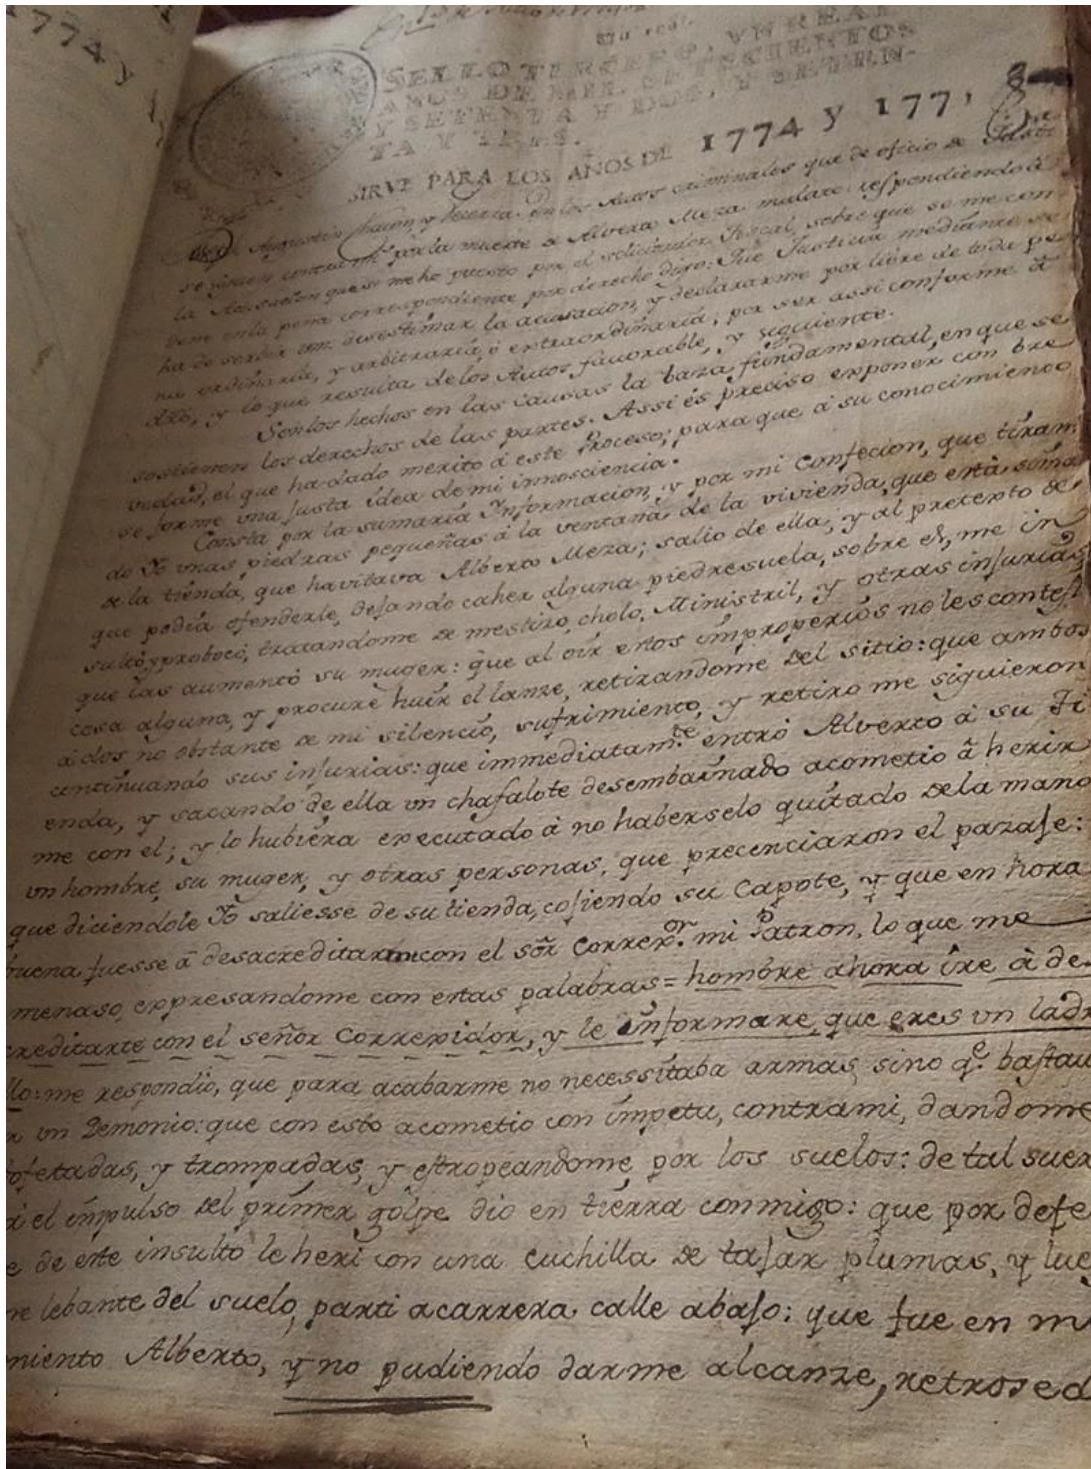 1774 y
SELLO TERCERO, VN REAL
AÑOS DE MIL SETECIENTOS
Y SETENTA Y DOS, Y SETEN-
TA Y TRES.
SIRVE PARA LOS AÑOS DE 1774 y 177
Augustin chacon, y becerra en los Autos criminales que de oficio de
se siguen contra mi por la muerte de Alverto Meza mulato: respondiendo â
la Acusacion que se me ha puesto por el solicitador Fiscal, sobre que se me con
dene en la pena correspondiente por derecho digo: Que Justicia mediante se
ha de servir Vm. desestimar la acusacion, y declararme por libre de toda pe
na ordinaria, y arbitraria, ô extraordinaria, por ser assi conforme â
dro, y lo que resulta de los Autos favorable, y siguiente.
Son los hechos en las causas la baza fundamental, en que se
sostienen los derechos de las partes. Assi és preciso exponer con bre
vedad, el que ha dado merito á este Proceso; para que â su conocimiento
se forme una justa idea de mi innosciencia.
Consta por la sumaria Informacion, y por mi Confecion, que tiran
do Yo unas piedras pequeñas â la ventana de la vivienda, que está
de la tienda, que havitava Alberto Meza; salio de ella, y al pretexto de
que podia ofenderle, dejando caher alguna piedresuela, sobre el, me in
sultó, y probocó, tratandome de mestizo, cholo, Ministril, y otras injurias
que las aumentó su muger: que al oir estos improperios no les contest
cosa alguna, y procuré huir el lanze, retirandome del sitio: que ambos
á dos no obstante de mi silencio, sufrimiento, y retiro me siguieron
continuando sus injurias: que immediatam.te entró Alverto á su ti
enda, y sacando de ella un chafalote desembainado acometio â herir
me con el; y lo hubiera executado â no haberselo quitado de la mano
un hombre, su muger, y otras personas, que precenciaron el pazaje:
que diciendole Yo saliesse de su tienda, cojiendo su Capote, y que en hora
buena fuesse â desacreditarme con el sõr Corre.or mi Patron, lo que me
menaso, expresandome con estas palabras = hombre ahora ire â de
creditarte con el señor Correxidor, y le informare, que eres un ladr
llo: me respondio, que para acabarme no necessitaba armas, sino q.e bastav
un Demonio: que con esto acometio con impetu, contra mi, dandome
ofetadas, y trompadas, y estropeandome por los suelos: de tal suer
el impulso del primer golpe dio en tierra conmigo: que por defe
de este insulto le heri con una cuchilla de tajar plumas, y lue
me lebante del suelo, parti a carrera calle abajo: que fue en m
miento Alberto, y no pudiendo darme alcanze, retrosed